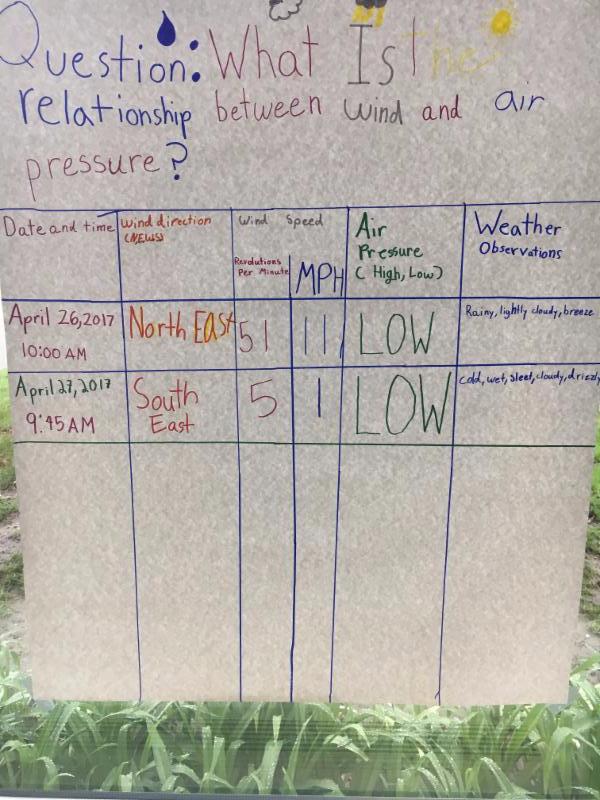 Question: What Is the
relationship between wind and air
pressure?
Date and time
Wind direction
(NEWS)
Wind Speed
Revolutions
Per Minute
MPH
Air
Pressure
(High, Low)
Weather
Observations
April 26, 2017
10:00 AM
North East
51
11
LOW
Rainy, lightly cloudy, breeze
April 27, 2017
9:45 AM
South
East
5
1
LOW
Cold, wet, sleet, cloudy, drizzly